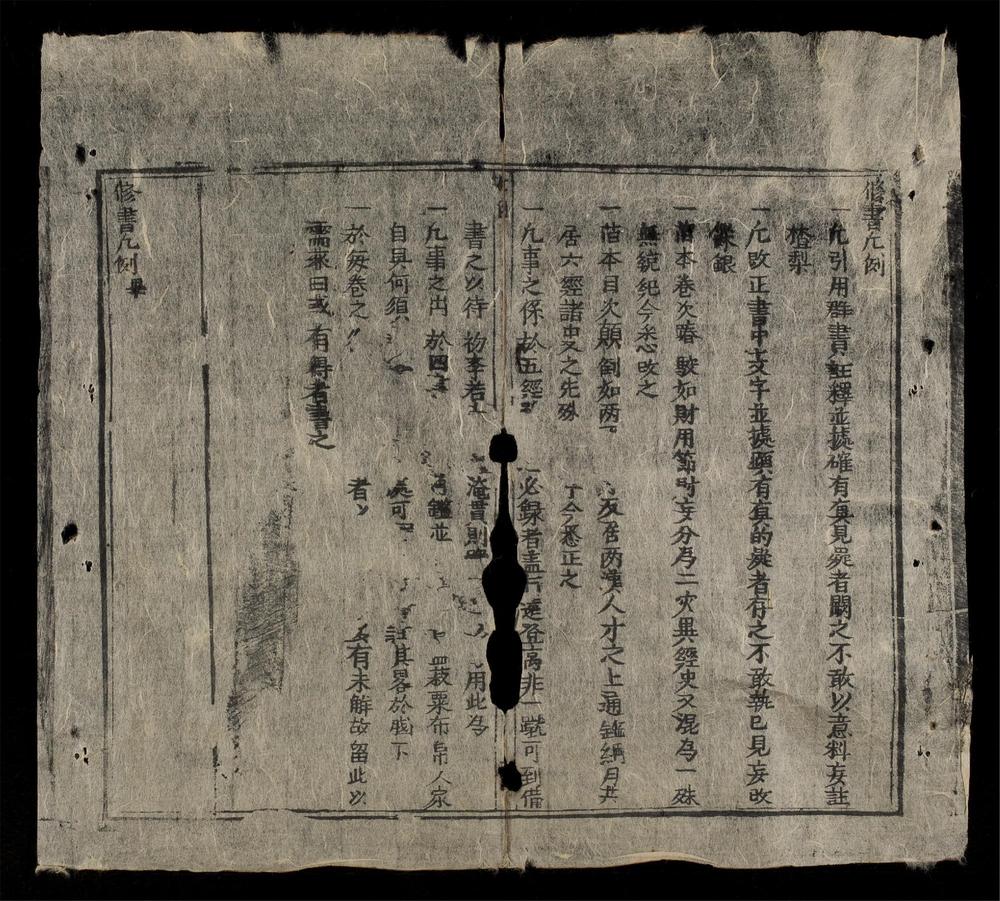 修書凡例
一凡引用群書註釋並據確有真見㝵者闕之不敢以意料妄註
楂梨
一凡改正書中文字並據顯有真的㝵者存之不敢執已見妄改
銀
一舊本卷次踳駁如財用節時妄分為二灾異經史又混為一殊
無統紀今悉改之
一舊本目次顛倒如两 反居两漢人才之上通鑑綱目共
居六經諸史之先殊 今悉正之
一凡事之係於五經 必録者盖行遠登高非一蹴可到備
書之以待 初李若 淹貫則 用此為
一凡事之出 於四 鑑並 菽粟布帛人家
自具何須 可 註其畧於題下
一於每卷之 者 有未解故留此以
需來日或有得者書之
修書凡例畢